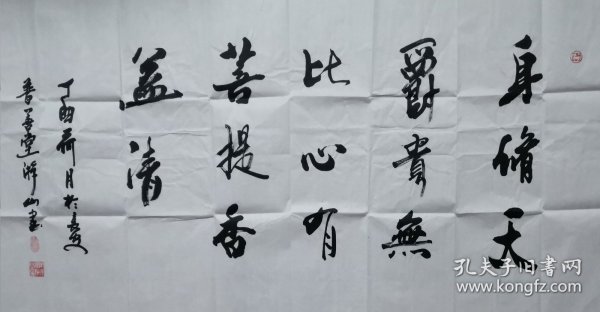 身脩天
爵貴無
比心有
菩提香
益清
丁酉荷月於
善堂 山書
孔夫子旧书网
www.kongfz.com